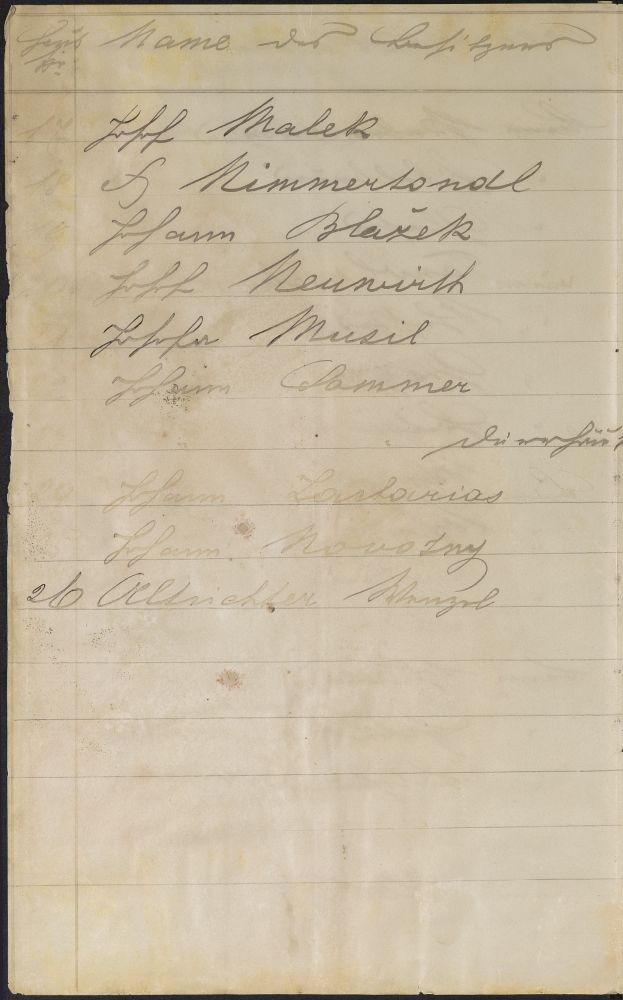 Haus Name des Besitzers
Nr.
17 Josef Malek
18 F. Nimmertondl
19 Johann Blažek
Josef Neuwirth
Josefa Musil
Johann Sommer
Johann Zacharias
Johann Novotny
26 Altrichter Wenzel